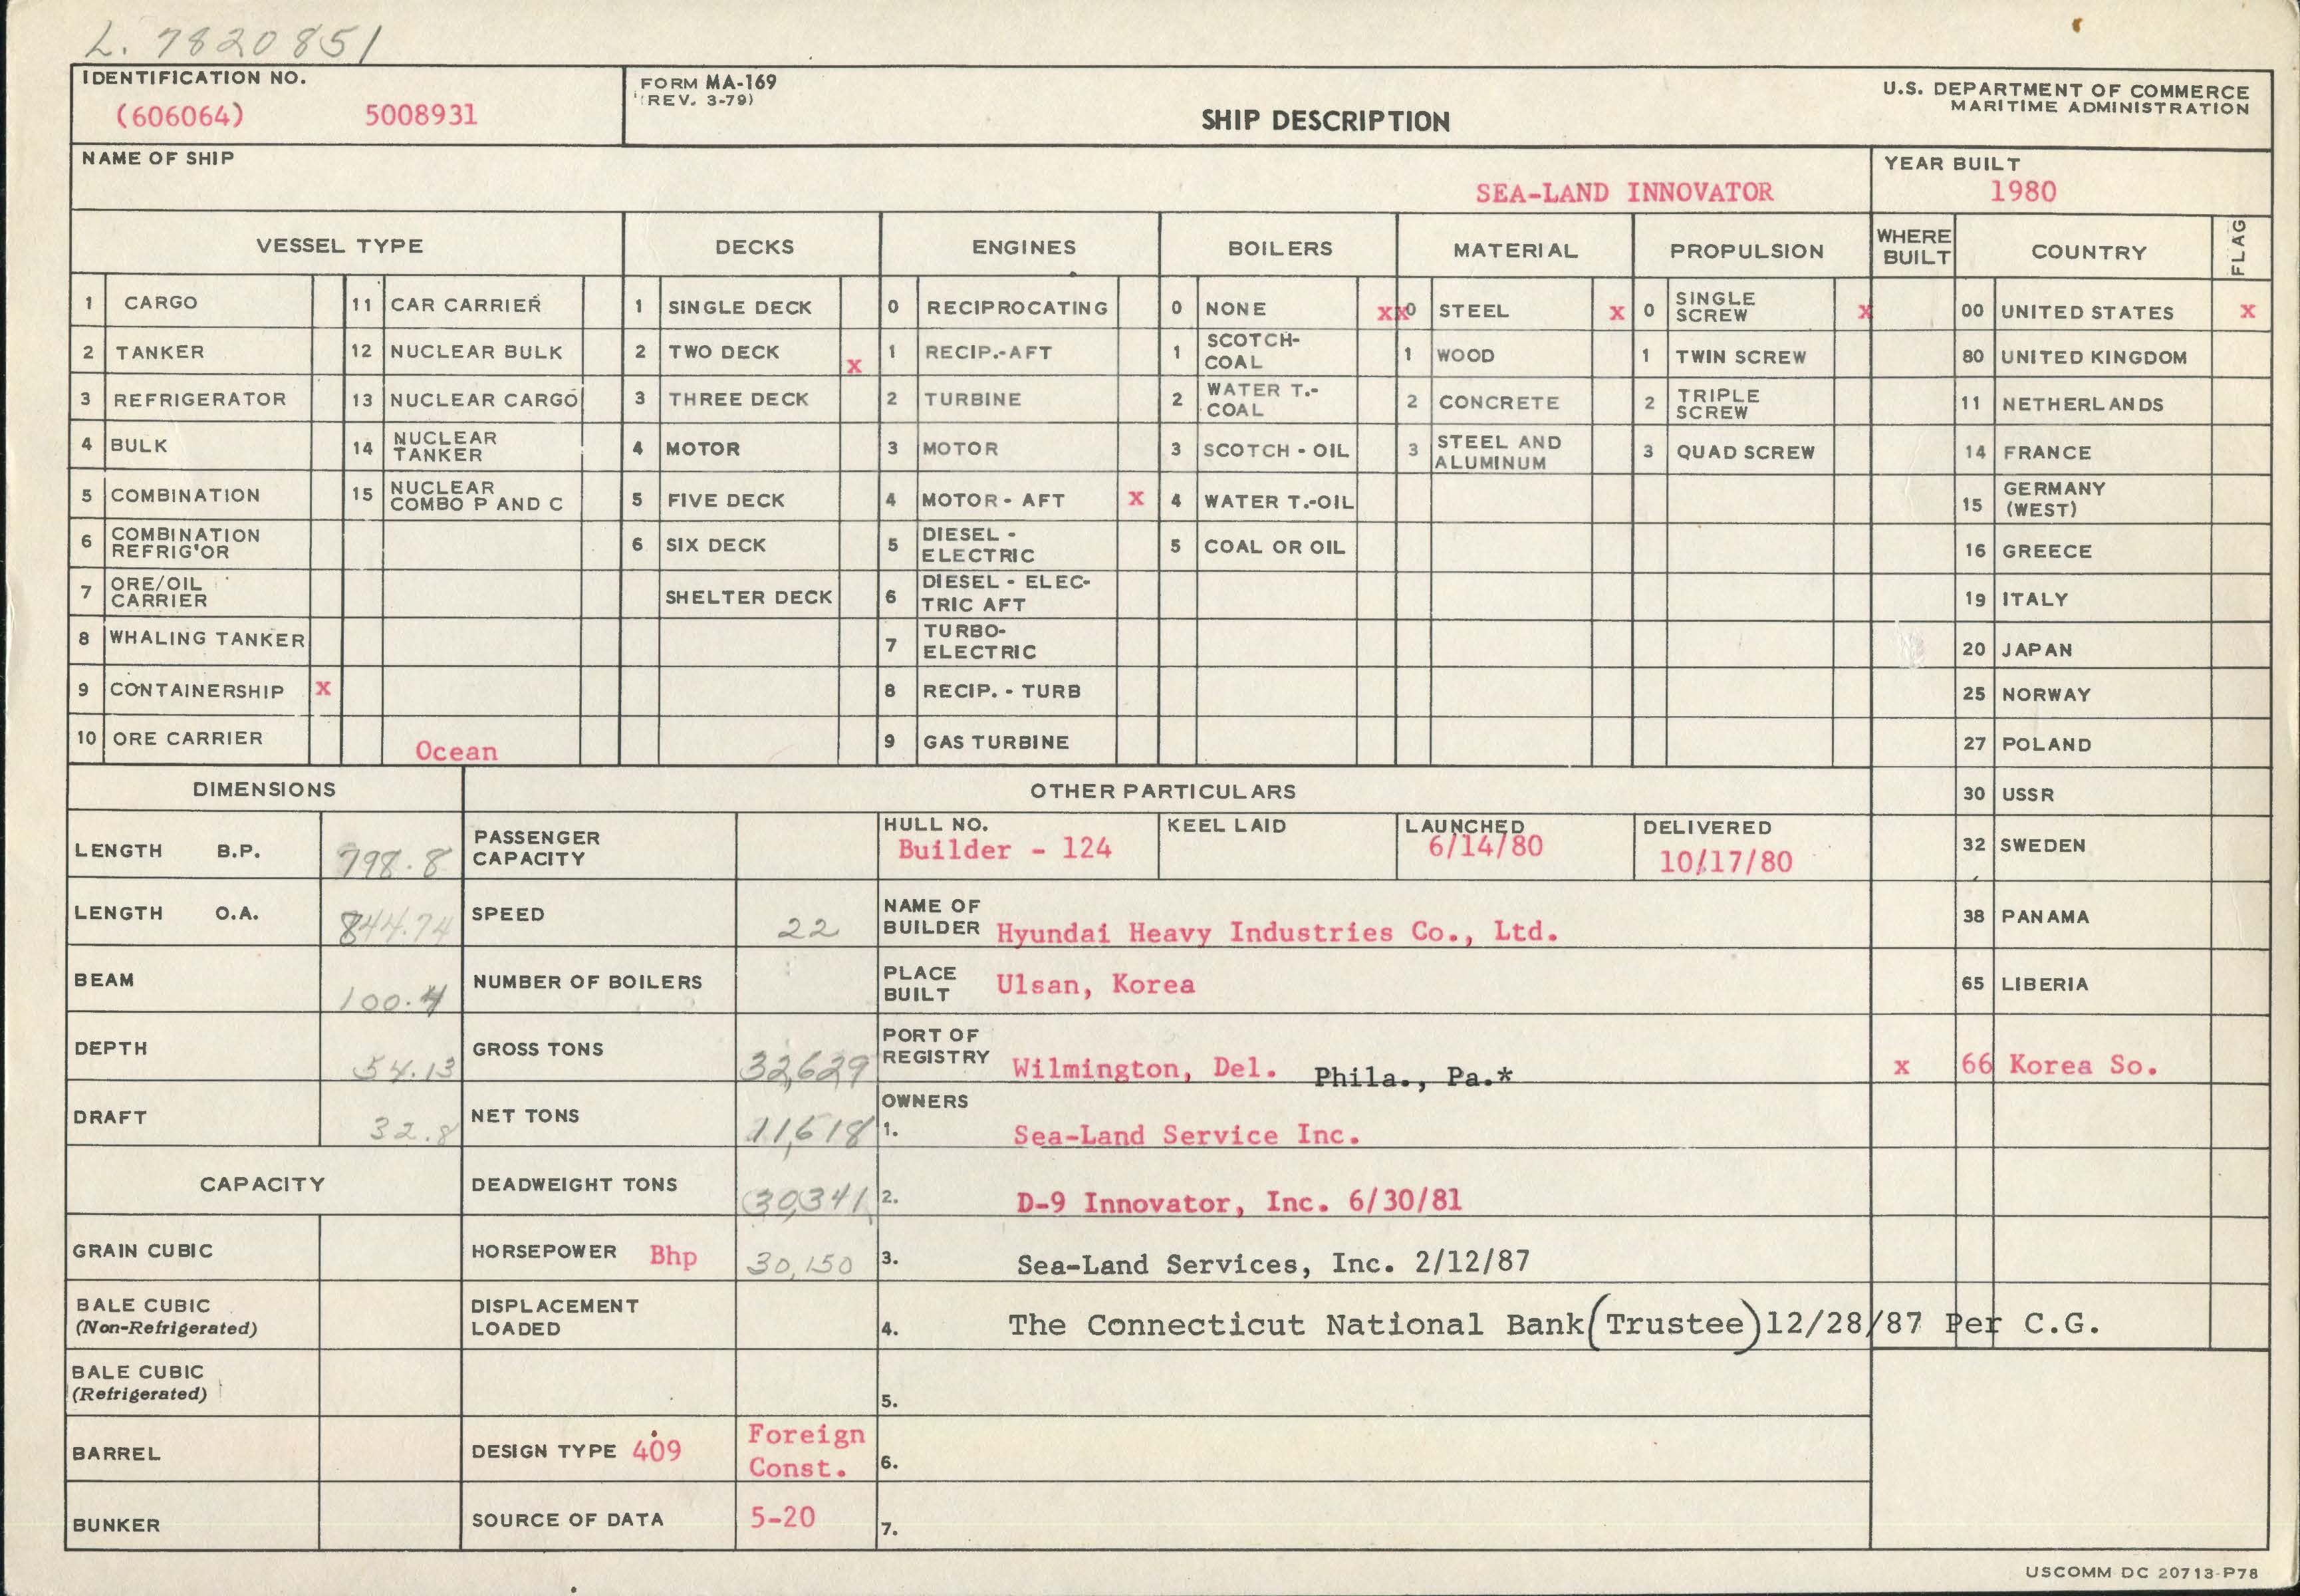 L. 7820851
IDENTIFICATION NO.
(606064) 5008931
FORM MA-169
(REV. 3-79)
SHIP DESCRIPTION
U.S. DEPARTMENT OF COMMERCE
MARITIME ADMINISTRATION
NAME OF SHIP
SEA-LAND INNOVATOR
YEAR BUILT
1980
VESSEL TYPE DECKS ENGINES BOILERS MATERIAL PROPULSION WHERE BUILT COUNTRY FLAG
1 CARGO 11 CAR CARRIER 1 SINGLE DECK 0 RECIPROCATING 0 NONE xx 0 STEEL x 0 SINGLE SCREW x 00 UNITED STATES x
2 TANKER 12 NUCLEAR BULK 2 TWO DECK x 1 RECIP.-AFT 1 SCOTCH-COAL 1 WOOD 1 TWIN SCREW 80 UNITED KINGDOM
3 REFRIGERATOR 13 NUCLEAR CARGO 3 THREE DECK 2 TURBINE 2 WATER T.-COAL 2 CONCRETE 2 TRIPLE SCREW 11 NETHERLANDS
4 BULK 14 NUCLEAR TANKER 4 MOTOR 3 MOTOR 3 SCOTCH - OIL 3 STEEL AND ALUMINUM 3 QUAD SCREW 14 FRANCE
5 COMBINATION 15 NUCLEAR COMBO P AND C 5 FIVE DECK 4 MOTOR - AFT x 4 WATER T.-OIL 15 GERMANY (WEST)
6 COMBINATION REFRIG'OR 6 SIX DECK 5 DIESEL - ELECTRIC 5 COAL OR OIL 16 GREECE
7 ORE/OIL CARRIER SHELTER DECK 6 DIESEL - ELEC-TRIC AFT 19 ITALY
8 WHALING TANKER 7 TURBO-ELECTRIC 20 JAPAN
9 CONTAINERSHIP x 8 RECIP. - TURB 25 NORWAY
10 ORE CARRIER Ocean 9 GAS TURBINE 27 POLAND
DIMENSIONS OTHER PARTICULARS 30 USSR
LENGTH B.P. 798.8 PASSENGER CAPACITY HULL NO. Builder - 124 KEEL LAID LAUNCHED 6/14/80 DELIVERED 10/17/80 32 SWEDEN
LENGTH O.A. 844.74 SPEED 22 NAME OF BUILDER Hyundai Heavy Industries Co., Ltd. 38 PANAMA
BEAM 100.4 NUMBER OF BOILERS PLACE BUILT Ulsan, Korea 65 LIBERIA
DEPTH 54.13 GROSS TONS 32,629 PORT OF REGISTRY Wilmington, Del. Phila., Pa.* x 66 Korea So.
DRAFT 32.8 NET TONS 11,618 OWNERS 1. Sea-Land Service Inc.
CAPACITY DEADWEIGHT TONS 30,341 2. D-9 Innovator, Inc. 6/30/81
GRAIN CUBIC HORSEPOWER Bhp 30,150 3. Sea-Land Services, Inc. 2/12/87
BALE CUBIC (Non-Refrigerated) DISPLACEMENT LOADED 4. The Connecticut National Bank (Trustee) 12/28/87 Per C.G.
BALE CUBIC (Refrigerated) 5.
BARREL DESIGN TYPE 409 Foreign Const. 6.
BUNKER SOURCE OF DATA 5-20 7.
USCOMM DC 20713-P78